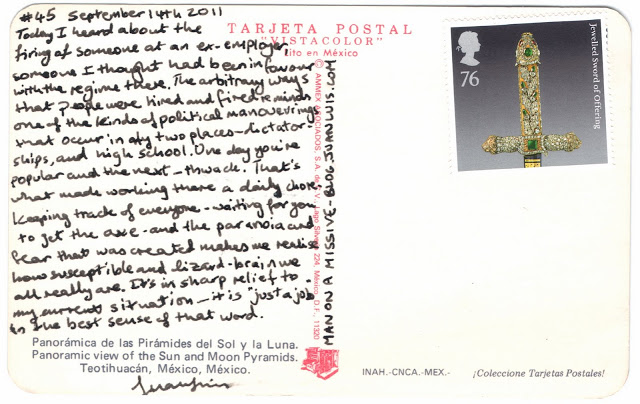 #45 September 14th 2011
Today I heard about the
firing of someone at an ex-employer
someone I thought had been in favour
with the regime there. The arbitrary ways
that people were hired and fired reminds
one of the kinds of political manoeuvrings
that occur in only two places - dictator-
ships, and high school. One day you're
popular and the next - thwack. That's
what made working there a daily chore.
Keeping track of everyone - waiting for you
to get the axe - and the paranoia and
fear that was created makes me realise
how susceptible and lizard-brain we
all really are. It's in sharp relief to
my current situation - it is "just a job"
in the best sense of that word.
Panorámica de las Pirámides del Sol y la Luna.
Panoramic view of the Sun and Moon Pyramids.
Teotihuacán, México, México.
TARJETA POSTAL
"VISTACOLOR"
ito en México
© AMMEX ASOCIADOS, S.A. de C.V., Lago Silver 224, México, D.F., 11320
MAN ON A MISSIVE - BLOG.JUANLUIS.COM
76
Jewelled Sword of Offering
INAH.-CNCA.-MEX.-
¡Coleccione Tarjetas Postales!